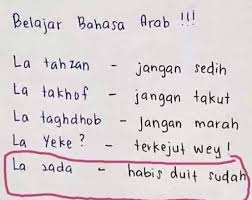 Belajar Bahasa Arab !!!
La tahzan - jangan sedih
La takhof - jangan takut
La taghdhob - Jangan marah
La Yeke? - terkejut wey!
La sada - habis duit sudah